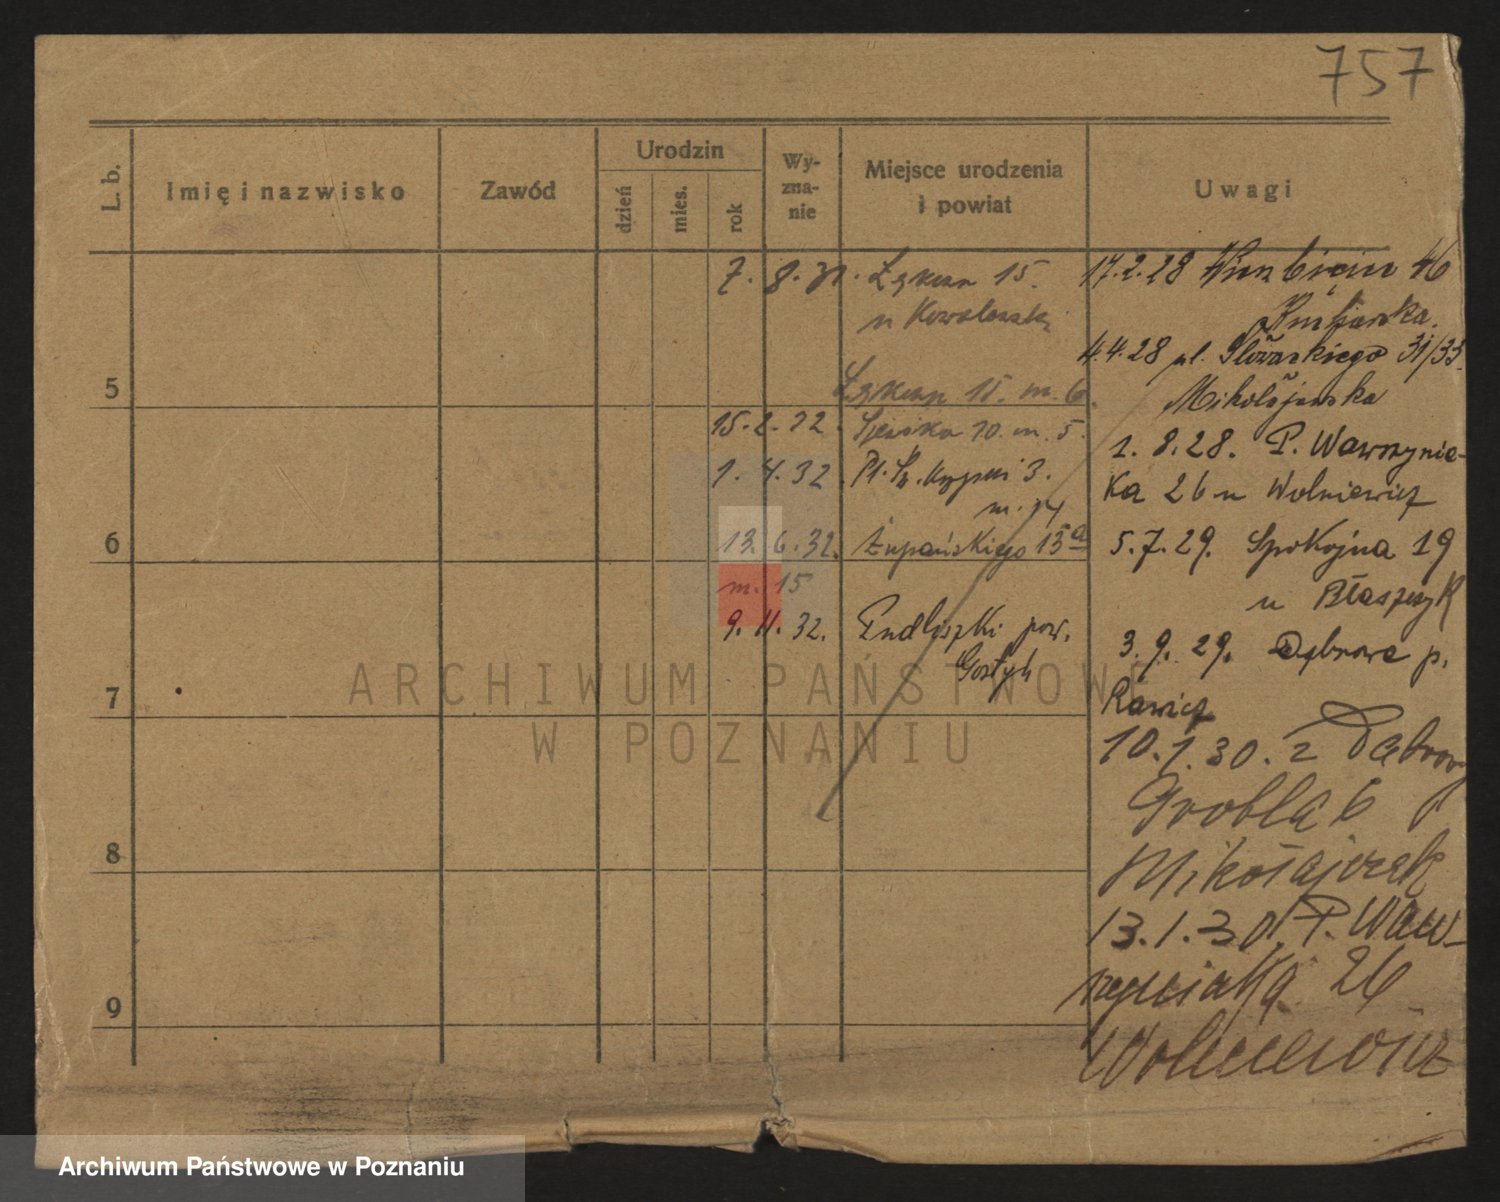 757
L. b.
Imię i nazwisko
Zawód
Urodzin
dzień
mies.
rok
Wy-
zna-
nie
Miejsce urodzenia
i powiat
Uwagi
7. 8. 31. Łąkowa 15.
u
Łąkowa 15. m. 6.
5
15. 2. 32. 10. m. 5.
1. 4. 32. Pl. 3.
m. 14
6
13. 6. 32. Żupańskiego 15a
m. 15
9. 11. 32. Pudliszki pow.
Gostyń
7
8
9
17.2.28 Wierzbięcice 46
4.4.28 pl. 31/33
Mikołajewska
1. 8. 28. P. Wawrzynia-
ka 26 u Wolniewicz
5. 7. 29. Spokojna 19
u Błaszczyk
3. 9. 29. Dąbrowa p.
Rawicz
10. 1. 30. z Dąbrowy
Grobla 6
Mikołajczak
13. 1. 30. P. Waw-
rzyniaka 26
Wolniewicz
ARCHIWUM PAŃSTWOWE
W POZNANIU
Archiwum Państwowe w Poznaniu